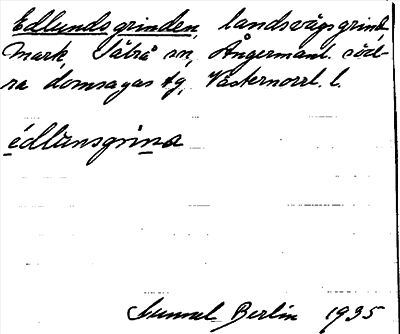 Edlundsgrinden, landsvägsgrind,
Mark, Säbrå sn, Ångermanl. söd-
ra domsagas tg, Västernorrl. l.
edlunsgrina
Gunnel Berlin 1935